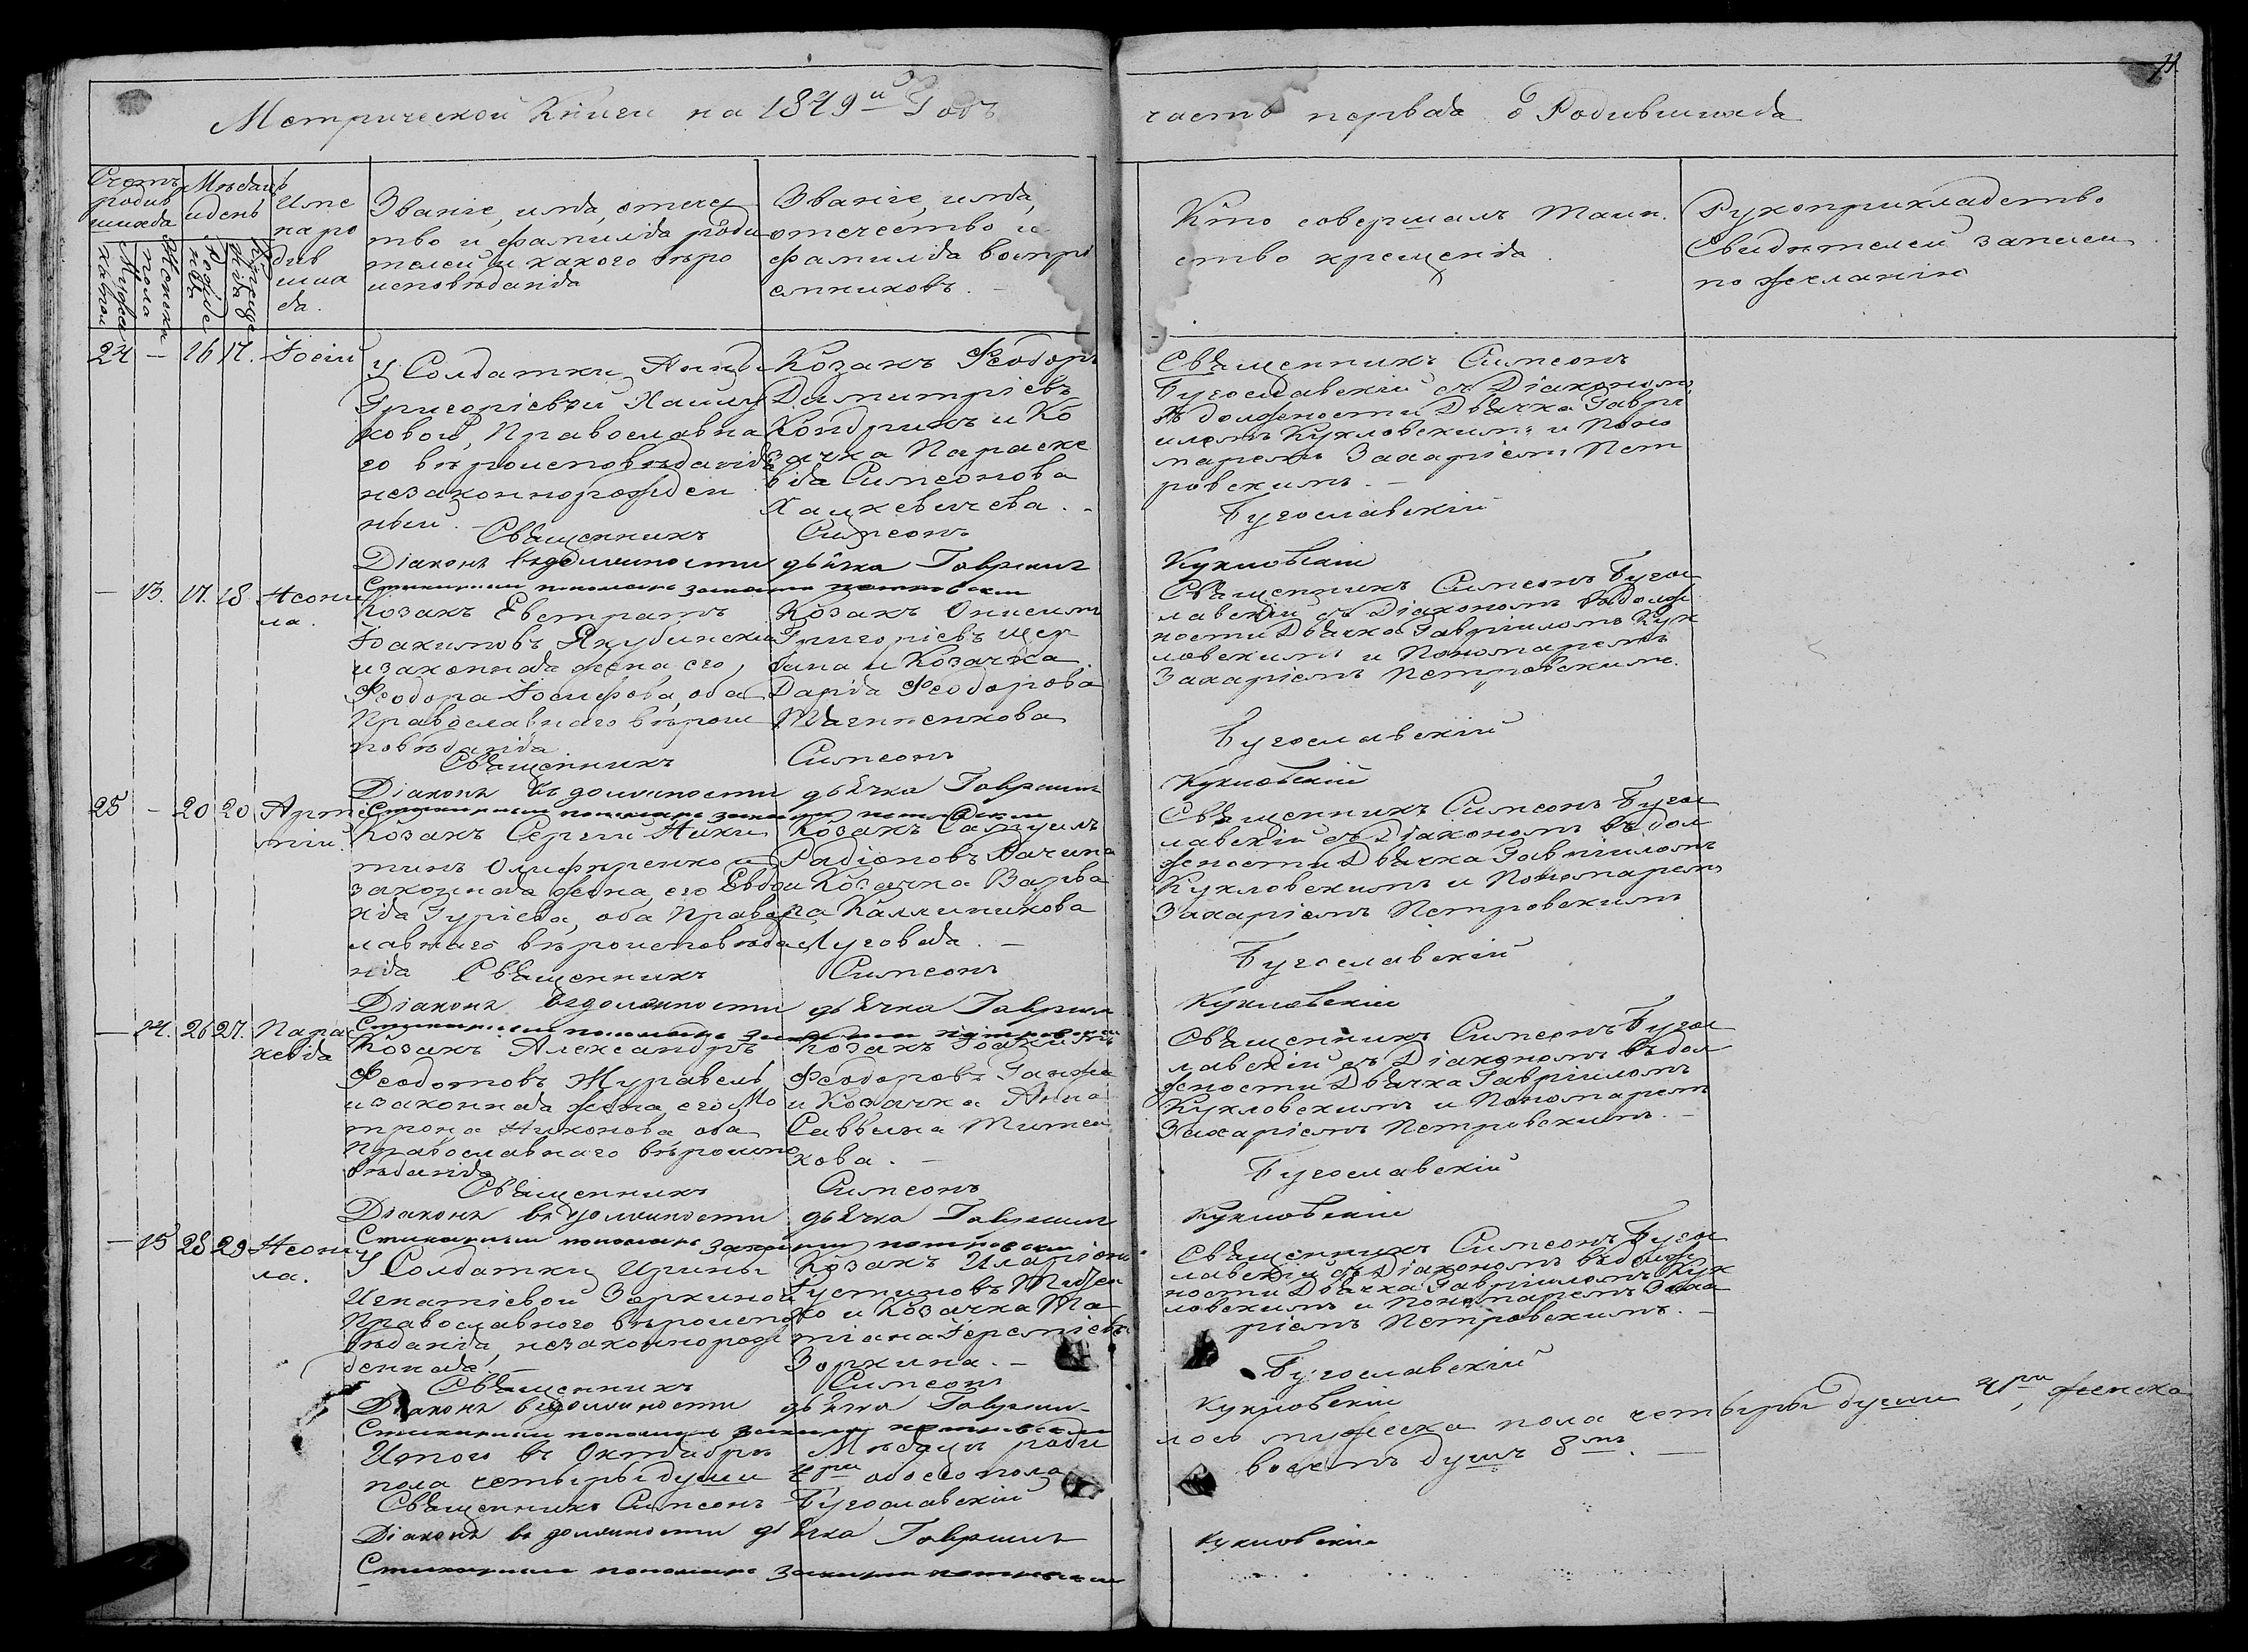 Метрической Книги на 1849й Годъ
часть первая о Родившихся
Счетъ родив шихся
Мужеска
Женска пола
Мѣсяцъ и день
рожде нія
креще нія
Имена ро див ших ся.
Званіе, имя, отечес
тво и фамилія роди
телей и какого вѣро
исповѣданія
Званіе, имя,
отечество и
фамилія воспрі
емниковъ. –
Кто совершалъ таин.
ство крещенія.
Рукоприкладство
Свидѣтелей записи
по желанію
24 – 16 17. Іосій
У Солдатки
Григоріевой
ковой, Православна
го вѣроисповѣданія
незаконнорожден
ный. –
Козакъ Ѳеодоръ
Димитріевъ
Кондрикъ и Ко
зачка Параске
вія Симеонова
Хацкевичева. –
Священникъ Симеонъ
Бугославскій съ Діакономъ
въ должности Дьячка Гаврі
иломъ Кукловскимъ и Поно
маремъ Захаріемъ Пет
ровскимъ. –
Священникъ Симеонъ Бугославскій
Діаконъ въ должности дьячка Гавріилъ Кукловскій
Стихарный пономарь Захарій Петровскій
– 13. 17. 18 Неони
ла.
Козакъ Евстратъ
Іоакимовъ Якубинскій
и законная жена его,
Ѳеодора Іосифова, оба
Православнаго вѣроис
повѣданія
Козакъ Онисимъ
Григоріевъ Щер
бина и Козачка
Дарія Ѳеодорова
Тягниенкова
Священникъ Симеонъ Бугос
лавскій съ Діакономъ въ долж
ности Дьячка Гавріиломъ Кук
ловскимъ и Пономаремъ
Захаріемъ Петровскимъ.
Священникъ Симеонъ Бугославскій
Діаконъ въ должности дьячка Гавріилъ Кукловскій
Стихарный пономарь Захарій Петровскій
25 – 20 20 Арте
мій.
Козакъ Сергій Ники
тинъ Олифиренко и
законная жена, его Евдо
кія Гуріева, оба Правос
лавнаго вѣроисповѣда
нія
Козакъ Самуилъ
Радіоновъ
Козачка Варва
ра Каллиникова
Луговая. –
Священникъ Симеонъ Бугос
лавскій съ Діакономъ въ дол
жности Дьячка Гавріиломъ
Кукловскимъ и Пономаремъ
Захаріемъ Петровскимъ
Священникъ Симеонъ Бугославскій
Діаконъ въ должности дьячка Гавріилъ Кукловскій
Стихарный пономарь Захарій Петровскій
– 14. 26 27. Парас
кевія
Козакъ Александръ
Ѳеодотовъ Журавель
и законная жена, его Мо
трона Никонова, оба
Православнаго вѣроиспо
вѣданія
Козакъ Іоакимъ
Ѳеодоровъ Ганжа
и Козачка Анна
Саввина
кова. –
Священникъ Симеонъ Бугос
лавскій съ Діакономъ въ дол
жности Дьячка Гавріиломъ
Кукловскимъ и Пономаремъ
Захаріемъ Петровскимъ. –
Священникъ Симеонъ Бугославскій
Діаконъ въ должности дьячка Гавріилъ Кукловскій
Стихарный пономарь Захарій Петровскій
– 15 28 29 Неони
ла.
У Солдатки Ирины
Игнатіевой Зоркиной
Православного вѣроиспо
вѣданія, незаконнорож
денная. –
Козакъ Иларіонъ
Іустиновъ
ко и Козачка Та
тіана Іереміева
Зоркина. –
Священникъ Симеонъ Бугос
лавскій съ Діакономъ въ долж
ности Дьячка Гавріиломъ Кук
ловскимъ и Пономаремъ Заха
ріемъ Петровскимъ. –
Священникъ Симеонъ Бугославскій
Діаконъ въ должности дьячка Гавріилъ Кукловскій
Стихарный пономарь Захарій Петровскій
Итого въ Октябрѣ Мѣсяцѣ роди лось мужеска пола четыры души 4ри, женска
пола четыры души 4ри обоего пола восемъ душъ 8мъ. –
Священникъ Симеонъ Бугославскій
Діаконъ въ должности дьячка Гавріилъ Кукловскій
Стихарный пономарь Захарій Петровскій